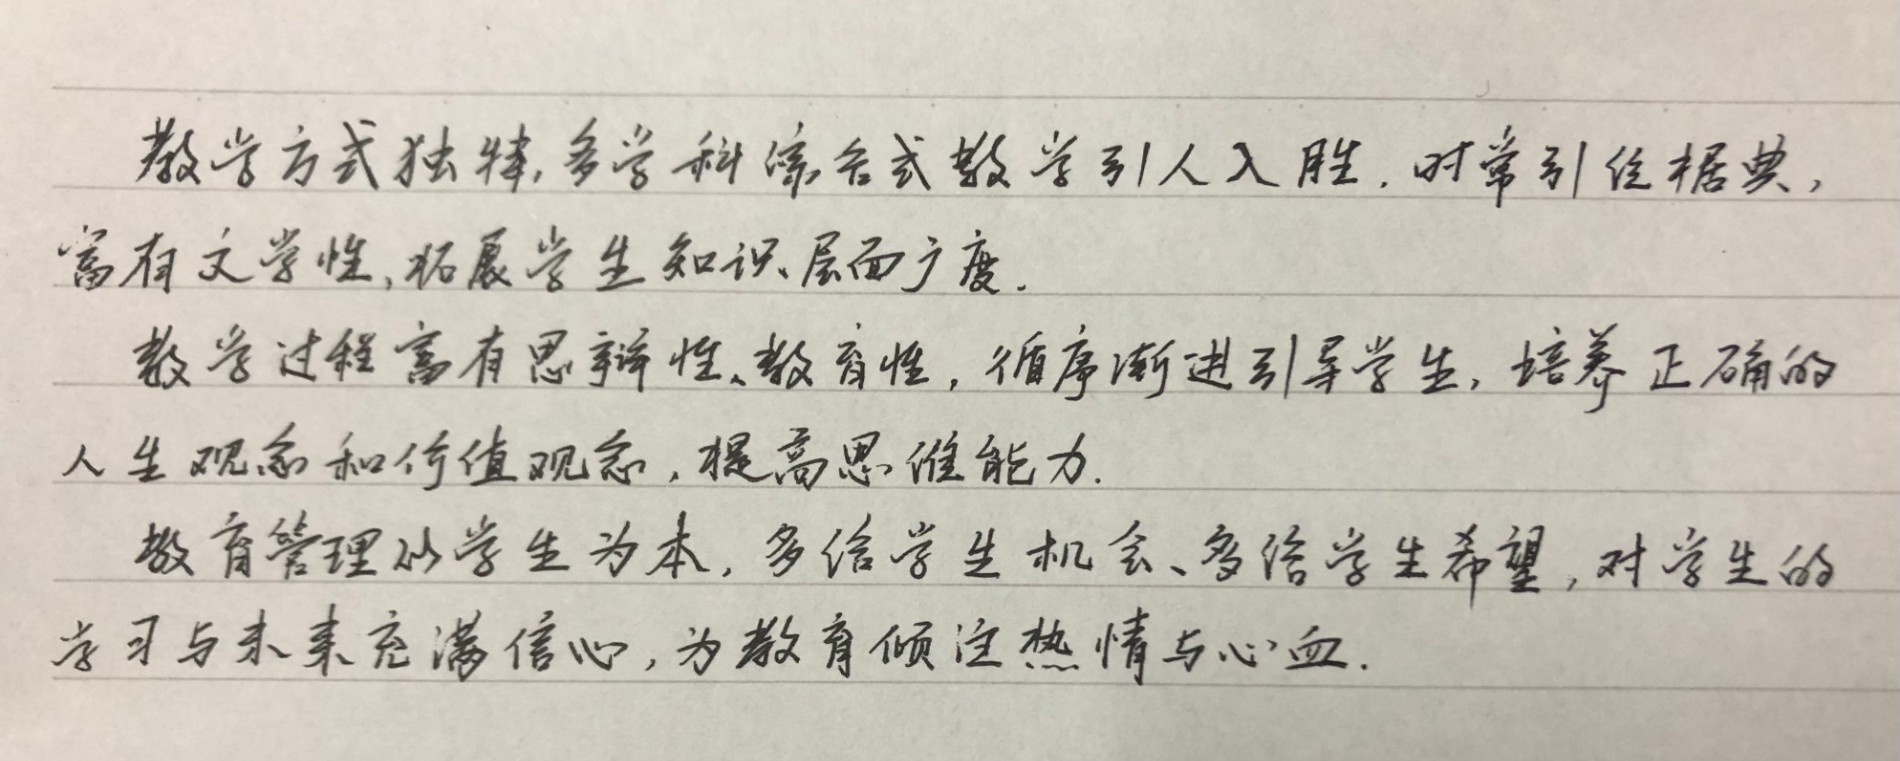 教学方式独特,多学科综合式教学引人入胜.时常引经据典,
富有文学性,拓展学生知识、层面广度.
教学过程富有思辩性、教育性,循序渐进引导学生,培养正确的
人生观念和价值观念,提高思维能力.
教育管理以学生为本,多给学生机会、多给学生希望,对学生的
学习与未来充满信心,为教育倾注热情与心血.